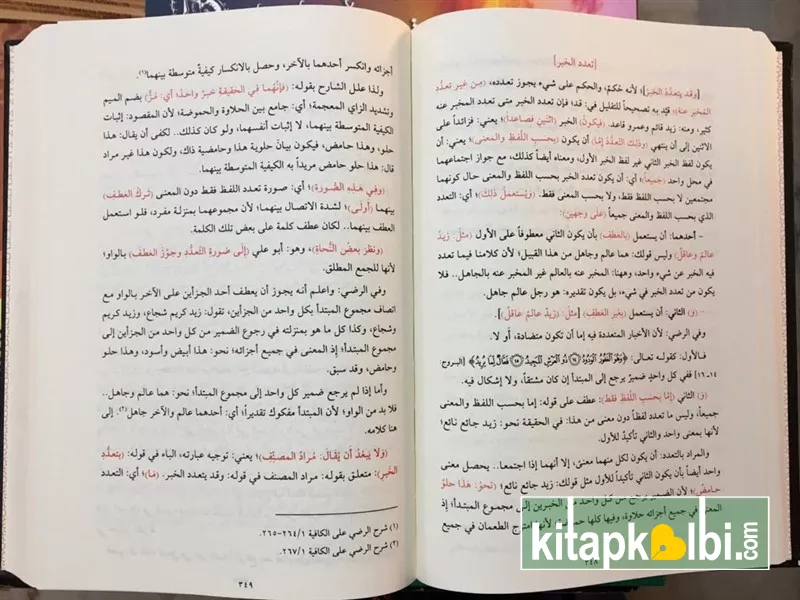 [تعدد الخبر]
(وقد يتعدّد الخبر)؛ لأنه حُكمٌ، والحكم على شيء يجوز تعدده، (من غير تعدّد
المخبر عنه) قيَّد به تصحيحاً للتقليل في: قد، فإن تعدد الخبر متى تعدد المخبر عنه
كثير، ومنه: زيد قائم وعمرو قاعد. (فيكون) الخبر (اثنين فصاعداً) يعني: فزائداً على
الاثنين إلى أن ينتهي (وذلك التعدّد إمّا) أن يكون (بحسب اللّفظ والمعنى)؛ يعني: أن
يكون لفظ الخبر الثاني غير لفظ الخبر الأول، ومعناه أيضاً كذلك، مع جواز اجتماعهما
في محل واحد (جميعاً)؛ أي: أن يكون تعدد الخبر بحسب اللفظ والمعنى حال كونهما
مجتمعين لا بحسب اللفظ فقط، ولا بحسب المعنى فقط. (ويُستعملُ ذلك)؛ أي: التعدد
الذي بحسب اللفظ والمعنى جميعاً (على وجهين):
- أحدهما: أن يستعمل (بالعطف) بأن يكون الثاني معطوفاً على الأول (مثل: زيدٌ
عالمٌ وعاقلٌ) وليس قولك: هما عالم وجاهل من هذا القبيل؛ لأن كلامنا فيما تعدد
فيه الخبر عن شيء واحد، وههنا: المخبر عنه بالعالم غير المخبر عنه بالجاهل.. فلا
يكون من تعدد الخبر في شيء، بل يكون تقديره: هو رجل عالم جاهل.
- (و) الثاني: أن يستعمل (بغير العطف) [(مثل: زيدٌ عالمٌ عاقلٌ)].
وفي الرضي: لأن الأخبار المتعددة فيه إما أن تكون متضادة، أو لا.
فالأول: كقوله تعالى: ﴿وَهُوَ الْغَفُورُ الْوَدُودُ ۝ ذُو الْعَرْشِ الْمَجِيدُ ۝ فَعَّالٌ لِمَا يُرِيدُ﴾ [البروج:
١٤-١٦] ففي كل واحدٍ ضميرٌ يرجع إلى المبتدأ إن كان مشتقاً، ولا إشكال فيه.
(و) الثاني (إمّا بحسب اللّفظ فقط): عطف على قوله: إما بحسب اللفظ والمعنى
جميعاً، وليس ما تعدد لفظاً دون معنى من هذا: في الحقيقة نحو: زيد جائع نائع؛
لأنهما بمعنى واحد والثاني تأكيدٌ للأول.
والمراد بالتعدد: أن يكون لكل منهما معنى، إلا أنهما إذا اجتمعا.. يحصل معنى
واحد أيضاً بأن يكون الثاني تأكيداً للأول مثل قولك: زيد جائع نائع؛ (نحو: هذا حلوٌ
حامضٌ)؛ لأن الضمير يرجع من كل واحد من الخبرين إلى مجموع المبتدأ؛ إذ
المعنى في جميع أجزائه حلاوة، وفيها كلها لأنهما امتزج الطعمان في جميع
٣٤٨
أجزائه وانكسر أحدهما بالآخر، وحصل بالانكسار كيفيةٌ متوسطة بينهما(١).
ولذا علل الشارح بقوله: (فإنّهما في الحقيقة خبرٌ واحدٌ؛ أي: مُزٌّ) بضم الميم
وتشديد الزاي المعجمة؛ أي: جامع بين الحلاوة والحموضة؛ لأن المقصود: إثبات
الكيفية المتوسطة بينهما، لا إثبات أنفسهما، ولو كان كذلك.. لكفى أن يقال: هذا
حلو، وهذا حامض، فيكون بيانَ حلوية هذا وحامضية ذاك، ولكون هذا غير مراد
قال: هذا حلو حامض مريداً به الكيفية المتوسطة بينهما.
(وفي هذه الصّورة)؛ أي: صورة تعدد اللفظ فقط دون المعنى (تركُ العطف)
بينهما (أولى)؛ لشدة الاتصال بينهما؛ لأن مجموعهما بمنزلة مفرد، فلو استعمل
العطف بينهما.. لكان عطف كلمة على بعض تلك الكلمة.
(ونظر بعضُ النُّحاة)، وهو: أبو علي (إلى صورة التّعدّد وجوّز العطف) بالواو؛
لأنها للجمع المطلق.
وفي الرضي: واعلم أنه يجوز أن يعطف أحد الجزأين على الآخر بالواو مع
اتصاف مجموع المبتدأ بكل واحد من الجزأين، تقول: زيد كريم شجاع، وزيد كريم
وشجاع، وكذا كل ما هو بمنزلته في رجوع الضمير من كل واحد من الجزأين إلى
مجموع المبتدأ؛ إذ المعنى في جميع أجزائه؛ نحو: هذا أبيض وأسود، وهذا حلو
وحامض، وقد سبق.
وأما إذا لم يرجع ضمير كل واحد إلى مجموع المبتدأ؛ نحو: هما عالم وجاهل..
فلا بد من الواو؛ لأن المبتدأ مفكوك تقديراً؛ أي: أحدهما عالم والآخر جاهل(٢). إلى
هنا كلامه.
(ولا يبعدُ أن يُقالَ: مُرادُ المصنّف)؛ يعني: توجيه عبارته، الباء في قوله: (بتعدّد
الخبر): متعلق بقوله: مراد المصنف في قوله: وقد يتعدد الخبر. (ما)؛ أي: التعدد
(١) شرح الرضي على الكافية ٢٦٤/١-٢٦٥.
(٢) شرح الرضي على الكافية ٢٦٧/١.
٣٤٩
kitapkolbi.com